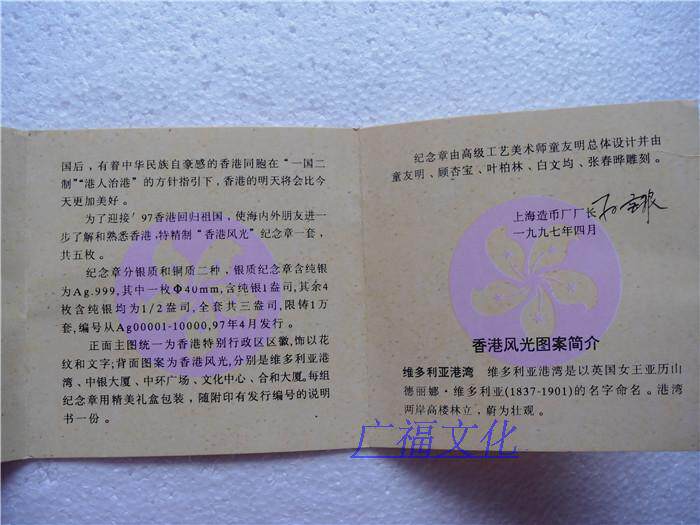 国后，有着中华民族自豪感的香港同胞在“一国二
制”“港人治港”的方针指引下，香港的明天将会比今
天更加美好。
为了迎接’97香港回归祖国，使海内外朋友进一
步了解和熟悉香港，特精制“香港风光”纪念章一套，
共五枚。
纪念章分银质和铜质二种，银质纪念章含纯银
为Ag.999，其中一枚Φ40mm，含纯银1盎司，其余4
枚含纯银均为1/2盎司，全套共三盎司，限铸1万
套，编号从Ag00001-10000，97年4月发行。
正面主图统一为香港特别行政区区徽，饰以花
纹和文字；背面图案为香港风光，分别是维多利亚港
湾、中银大厦、中环广场、文化中心、合和大厦。每组
纪念章用精美礼盒包装，随附印有发行编号的说明
书一份。
纪念章由高级工艺美术师童友明总体设计并由
童友明、顾杏宝、叶柏林、白文均、张春晔雕刻。
上海造币厂厂长
一九九七年四月
香港风光图案简介
维多利亚港湾 维多利亚港湾是以英国女王亚历山
德丽娜·维多利亚(1837-1901)的名字命名。港湾
两岸高楼林立，蔚为壮观。
广福文化